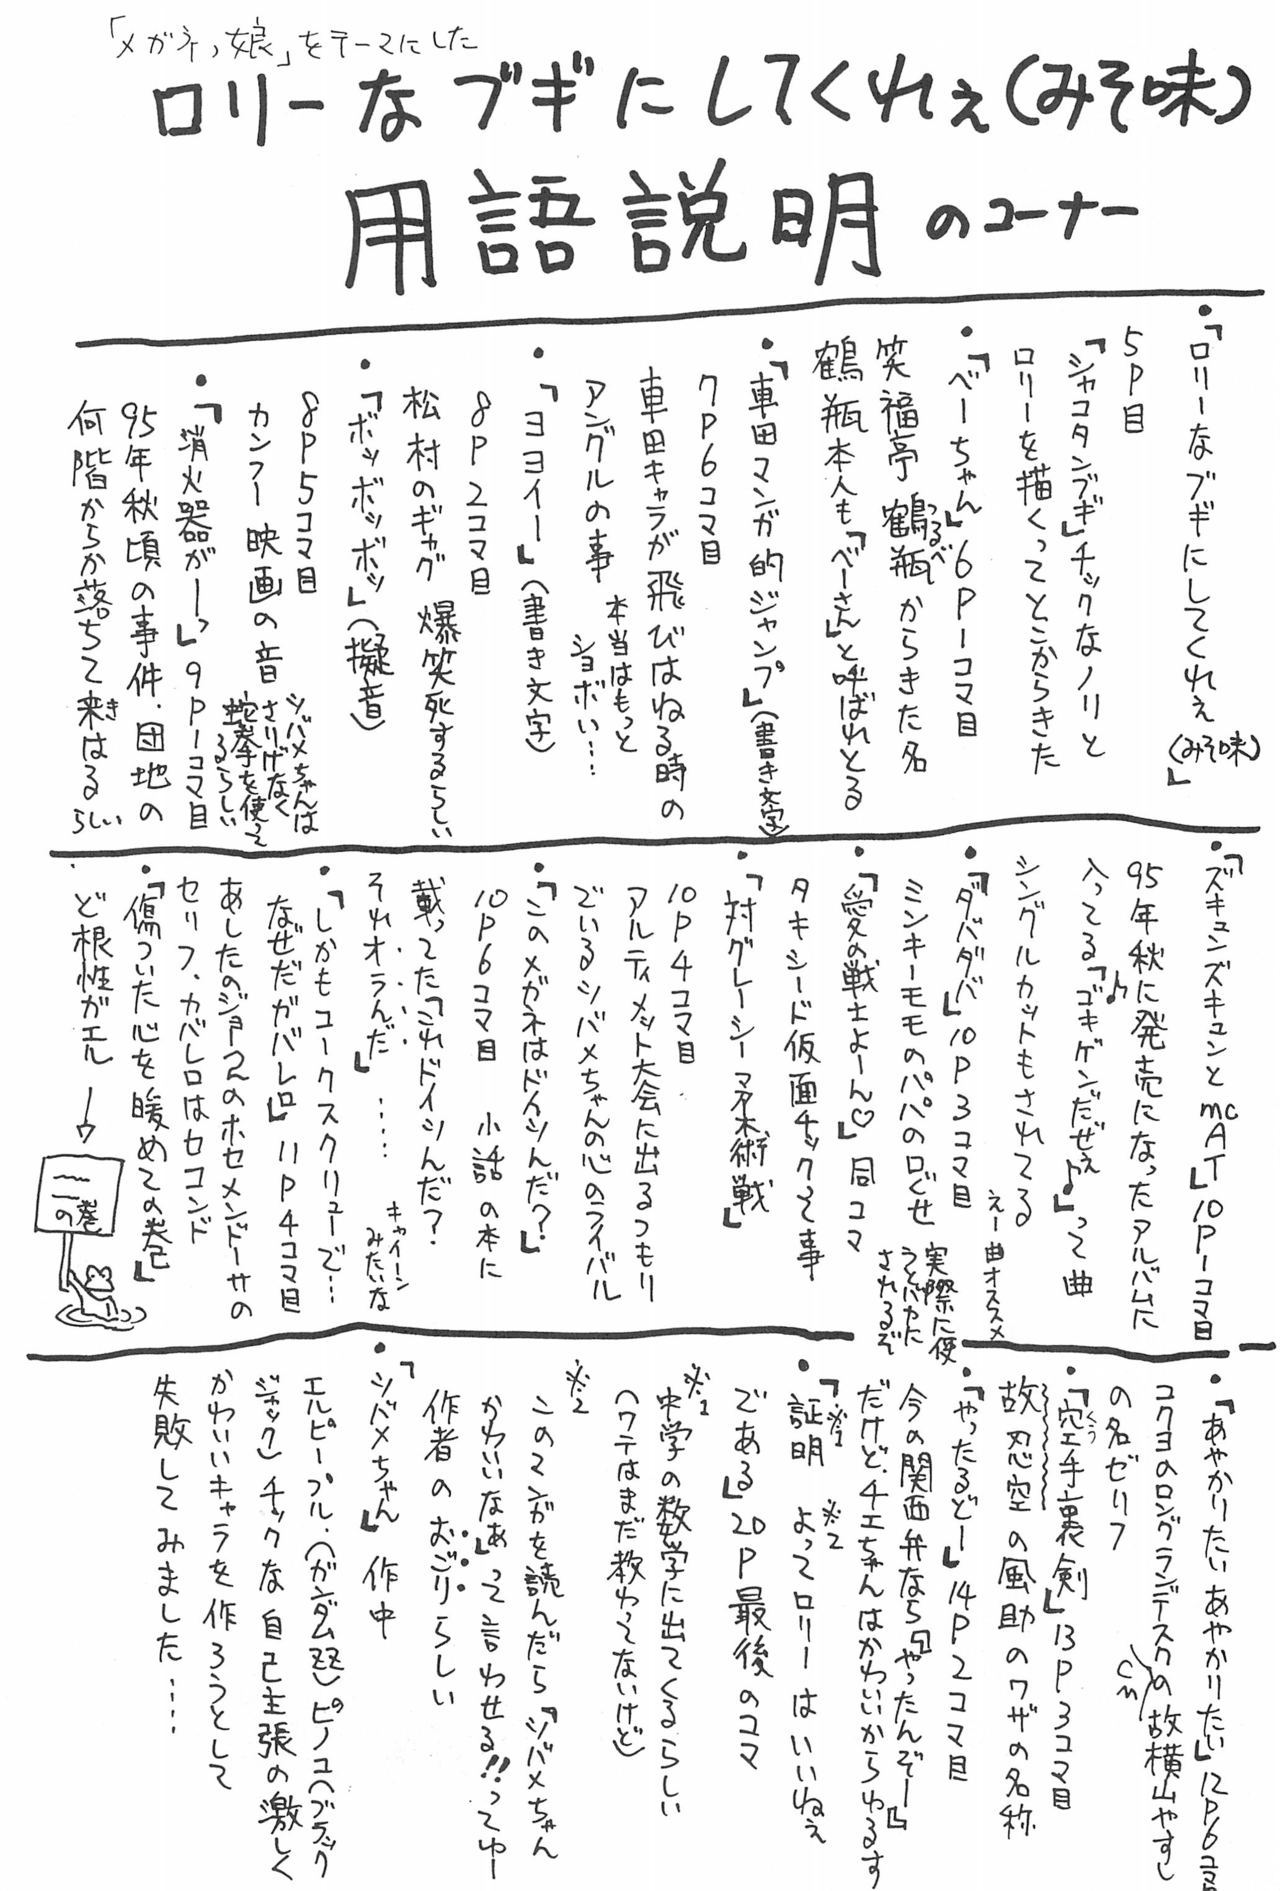 「メガネっ娘」をテーマにした
ロリーなブギにしてくれぇ(みそ味)
用語説明のコーナー
・「ロリーなブギにしてくれぇ(みそ味)」
5P目
「シャコタンブギ」チックなノリと
ロリーを描くってとこからきた
・「べーちゃん」6P1コマ目
笑福亭鶴瓶からきた名
つるべ
鶴瓶本人も「べーさん」と呼ばれとる
・「車田マンガ的ジャンプ」(書き文字)
7P6コマ目
車田キャラが飛びはねる時の
アングルの事
本当はもっと
ショボい…
・「ヨヨイー」(書き文字)
8P2コマ目
松村のギャグ 爆笑死するらしい
・「ボッボッボッ」(擬音)
8P5コマ目
カンフー映画の音
シバメちゃんは
さりげなく
蛇拳を使って
るらしい
・「消火器がーっ」9P1コマ目
95年秋頃の事件.団地の
何階からか落ちて来はるらしい
き
・「ズキュンズキュンとmcAT」10P1コマ目
95年秋に発売になったアルバムに
入ってる「ゴキゲンだぜぇ♪」って曲
シングルカットもされてる
えー曲オススメ
・「ダバダバ」10P3コマ目
ミンキーモモのパパの口ぐせ
実際に使
うとバカに
されるぞ
・「愛の戦士よーん♡」同コマ
タキシード仮面チックて事
・「対グレーシーマネ木術戦」
10P4コマ目
アルティメット大会に出るつもり
でいるシバメちゃんの心のライバル
・「このメガネはドイツんだ?」
10P6コマ目 小話の本に
載ってた「これドイツんだ?
それオラんだ」……
キャイーン
みたいな
・「しかもコークスクリューで…
なぜだガバレロ」11P4コマ目
あしたのジョー2のホセメンドーサの
セリフ、カバレロはセコンド
・「傷ついた心を暖めての巻」
ど根性ガエル→
の巻
・「あやかりたいあやかりたい」12P6コマ目
コクヨのロングランデスクの故横山やすし
CM
の名ゼリフ
・「空手裏剣」13P3コマ目
くう
故忍空の風助のワザの名称
・「やったるどー」14P2コマ目
今の関西弁なら「やったんぞー」
だけど.チエちゃんはかわいからゆるす
・「証明 よってロリーはいいねぇ
※1 ※2
である」20P最後のコマ
※1
中学の数学に出てくるらしい
(ワテはまだ教わってないけど)
※2
このマンガを読んだら「シバメちゃん
かわいいなぁ」って言わせる!!ってゆー
作者のおごりらしい
・「シバメちゃん」作中
エルピープル.(ガンダムZZ)ピノコ(ブラック
ジャック)チックな自己主張の激しく
かわいいキャラを作ろうとして
失敗してみました……